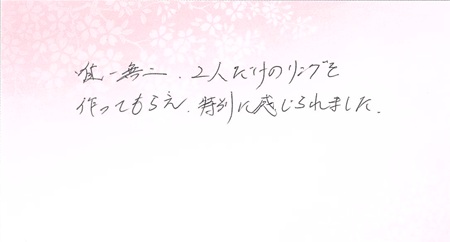 唯一無二、2人だけのリングを
作ってもらえ、特別に感じられました。